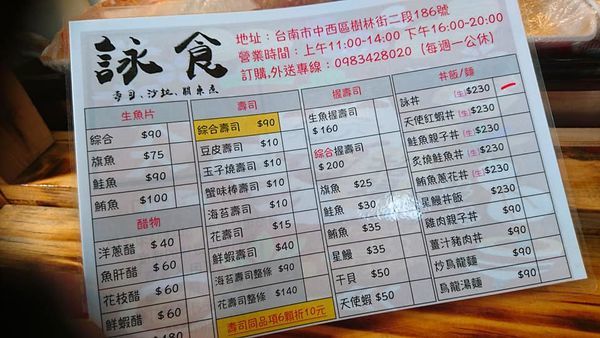 詠食
壽司、沙拉、關東煮
地址：台南市中西區樹林街二段186號
營業時間：上午11:00-14:00 下午16:00-20:00
訂購,外送專線：0983428020 (每週一公休)
生魚片
綜合 $90
旗魚 $75
鮭魚 $90
鮪魚 $100
醋物
洋蔥醋 $40
魚肝醋 $60
花枝醋 $60
鮮蝦醋 $60
壽司
綜合壽司 $90
豆皮壽司 $10
玉子燒壽司 $10
蟹味棒壽司 $10
海苔壽司 $10
花壽司 $15
鮮蝦壽司 $40
海苔壽司整條 $90
花壽司整條 $140
壽司同品項6顆折10元
握壽司
生魚握壽司
$160
綜合握壽司
$200
旗魚 $25
鮭魚 $30
鮪魚 $35
星鰻 $35
干貝 $50
天使蝦 $50
丼飯/麵
詠丼 (生)$230
天使紅蝦丼 (生)$230
鮭魚親子丼 (生)$230
炙燒鮭魚丼 (生)$230
鮪魚蔥花丼 (生)$230
星鰻丼飯 $230
雞肉親子丼 $90
薑汁豬肉丼 $90
炒烏龍麵 $90
烏龍湯麵 $90